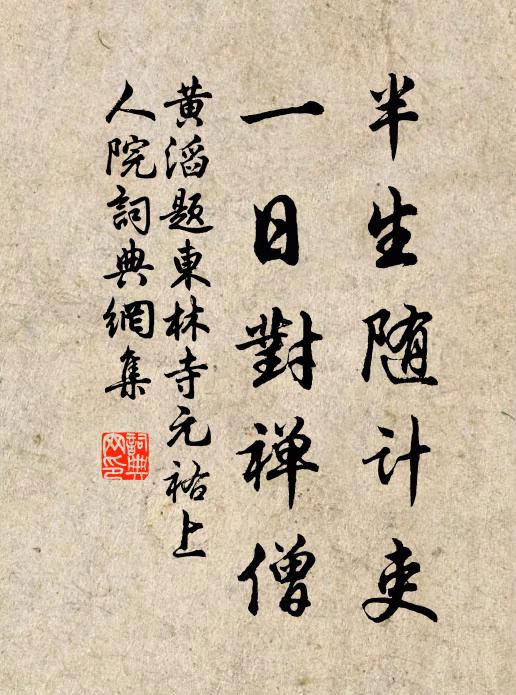 半生随计吏
一日對禅僧
黄滔题東林寺元祐上
人院詞典網集
詞典
网印